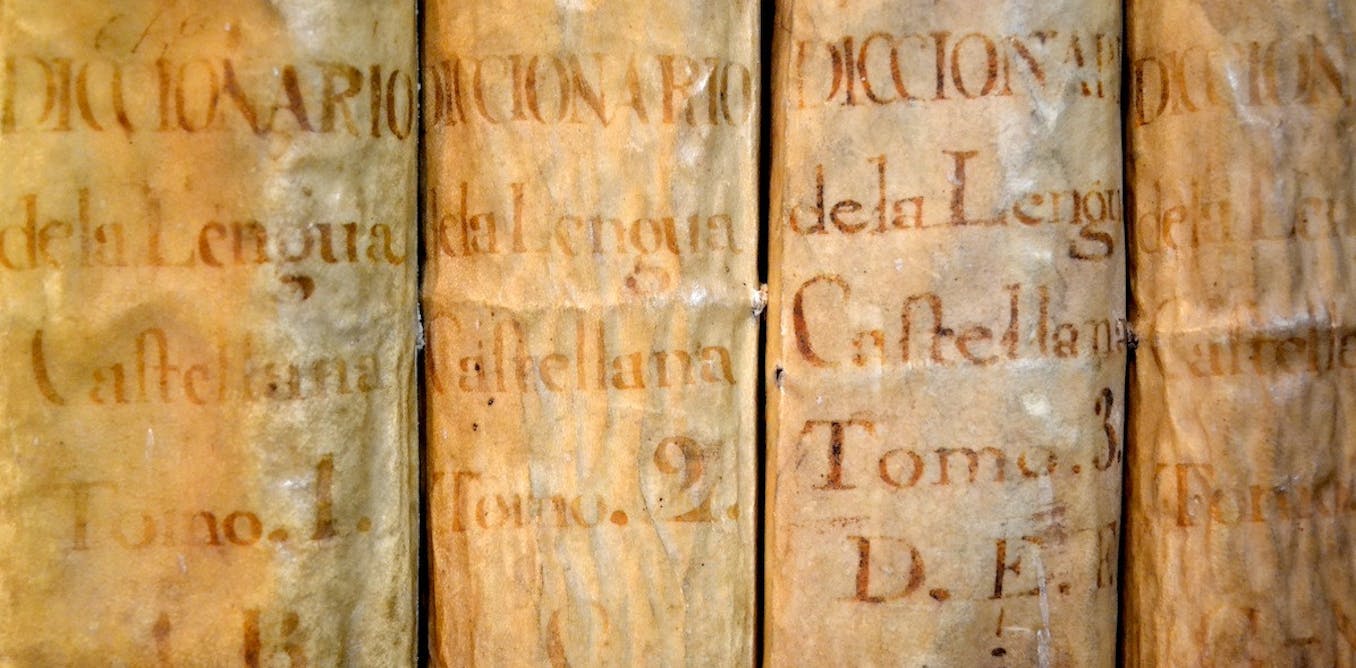 DICCIONARIO
de la Lengua
Caſtellana
Tomo. 1.
B
DICCIONARIO
da Lengua
Caſtellana
Tomo. 2.
C
DICCIONAR
de la Lengu
Caſtellana
Tomo. 3.
D. E. F
DICCION
de la Len
Caſtella
Tomo